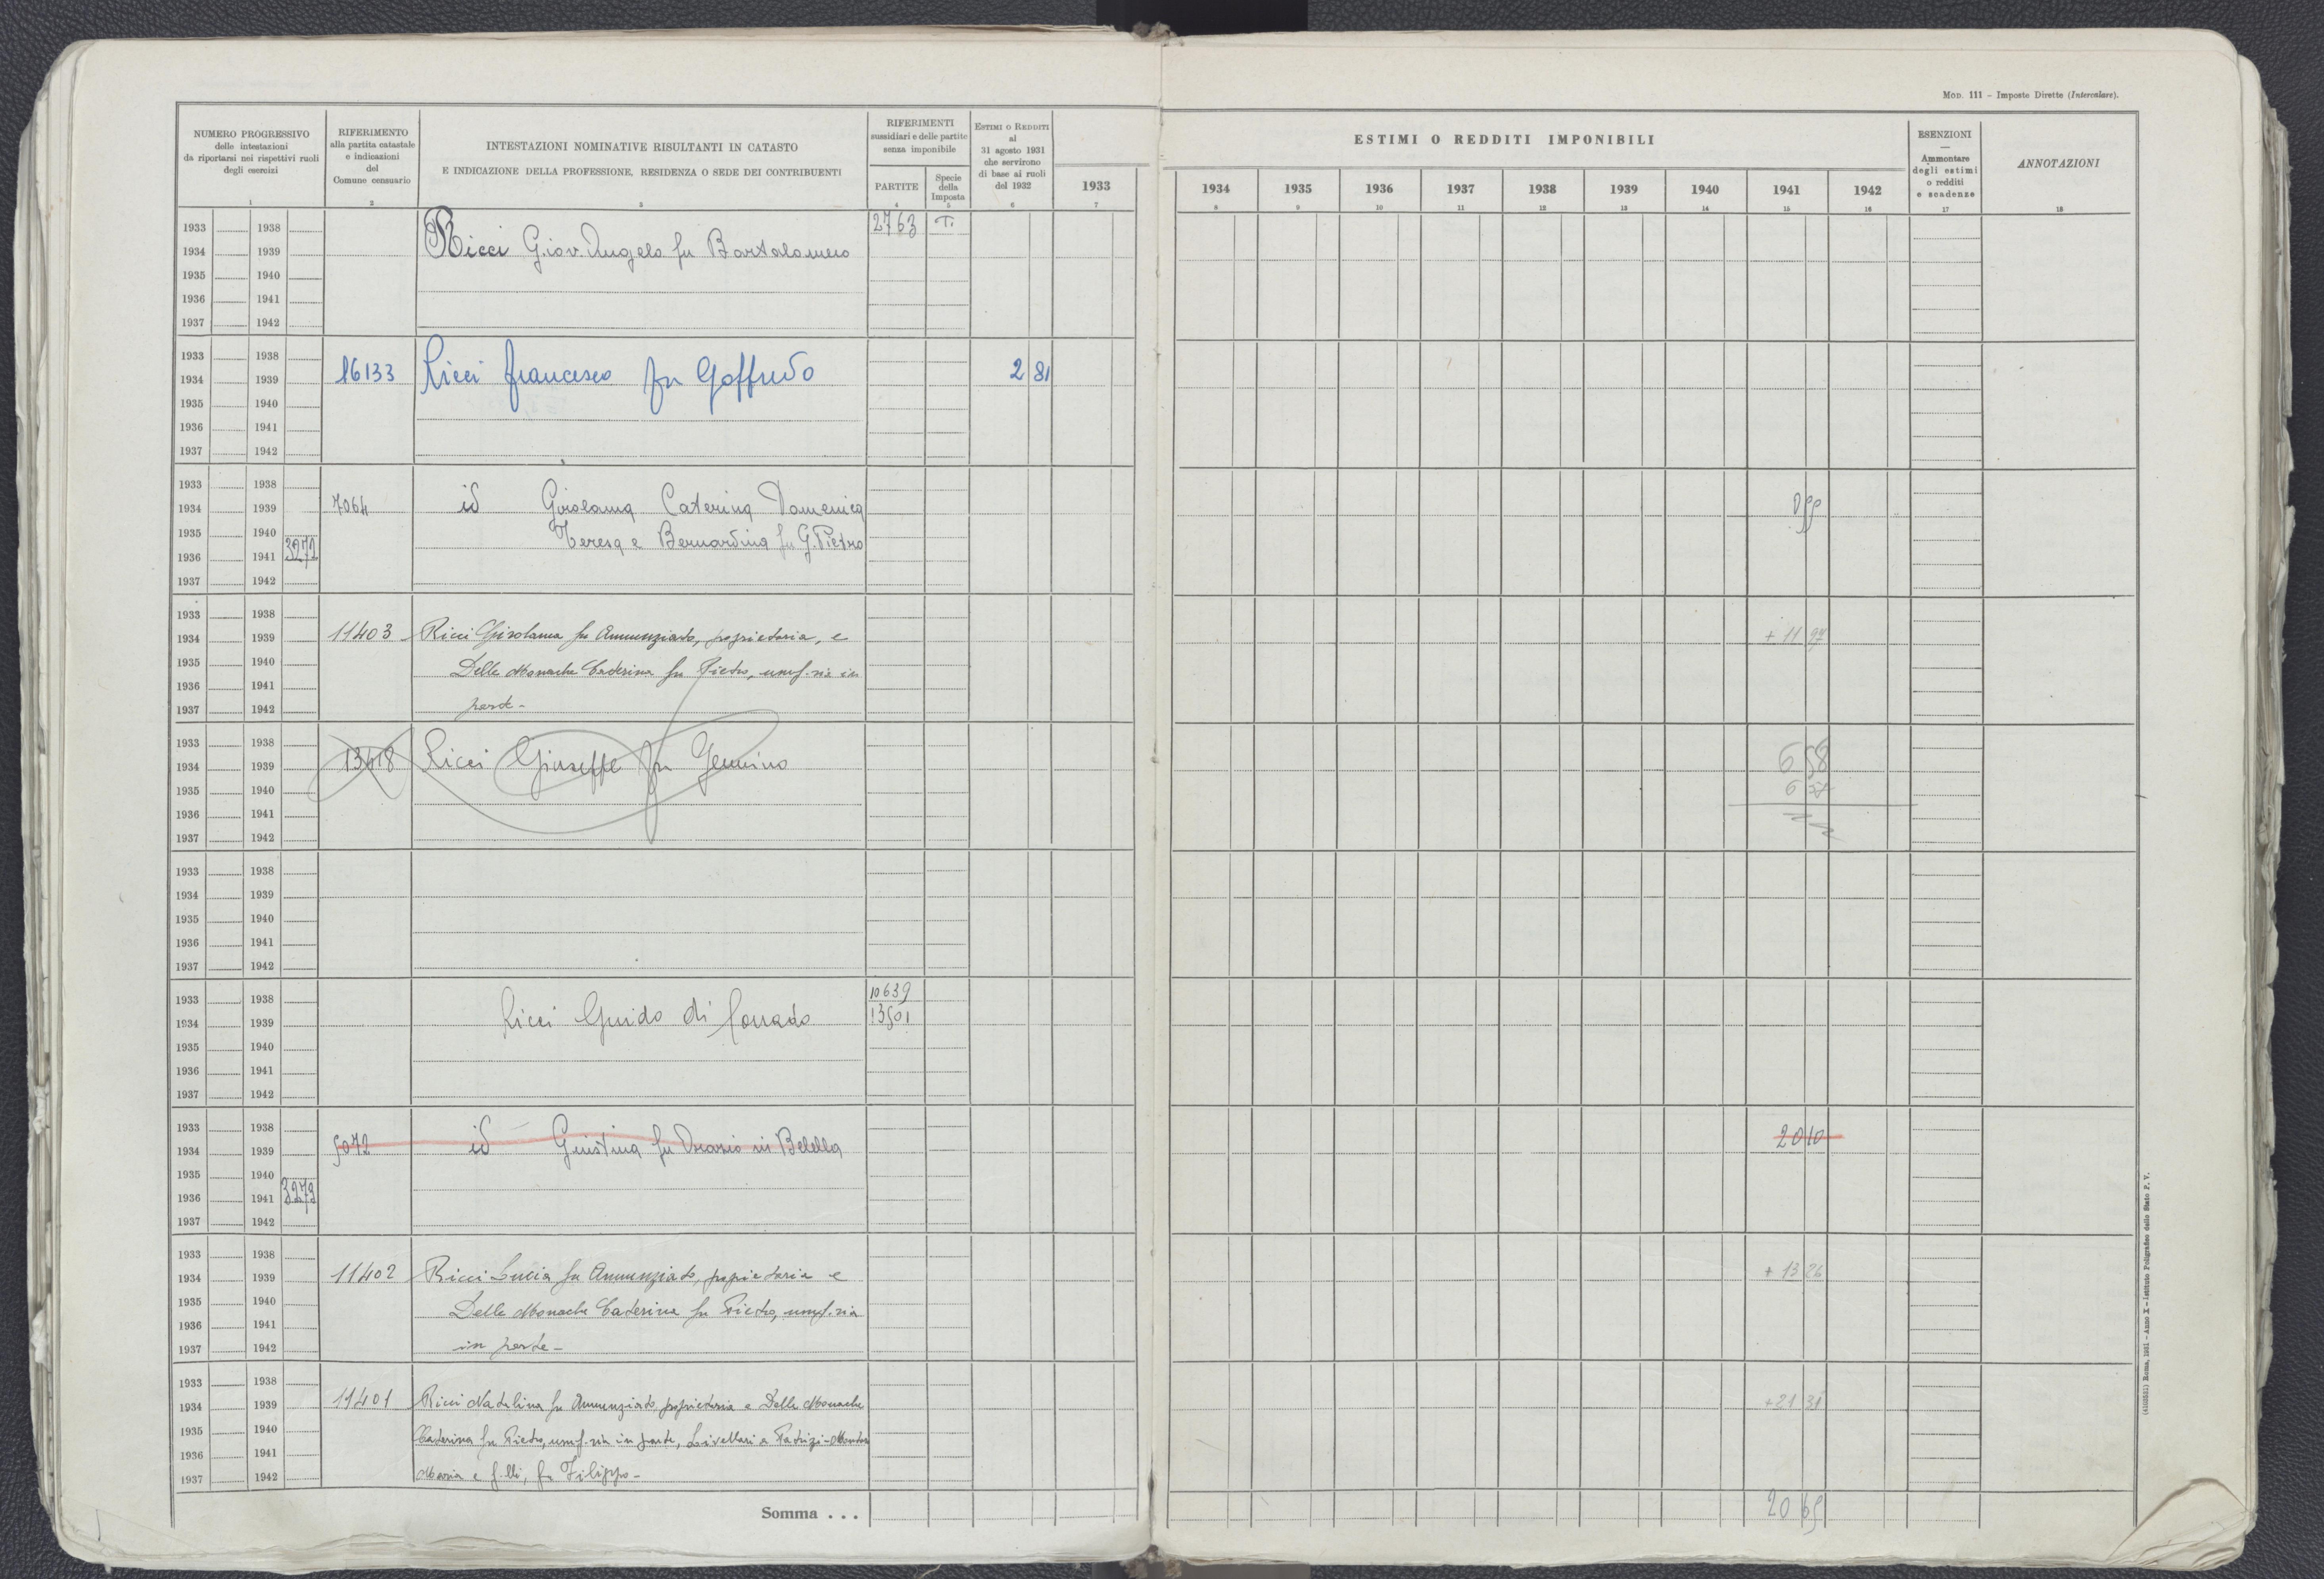 MOD. 111 – Imposte Dirette (Intercalare).
NUMERO PROGRESSIVO
delle intestazioni
da riportarsi nei rispettivi ruoli
degli esercizi
1
RIFERIMENTO
alla partita catastale
e indicazioni
del
Comune censuario
2
INTESTAZIONI NOMINATIVE RISULTANTI IN CATASTO
E INDICAZIONE DELLA PROFESSIONE, RESIDENZA O SEDE DEI CONTRIBUENTI
3
RIFERIMENTI
sussidiari e delle partite
senza imponibile
PARTITE
4
Specie
della
Imposta
5
ESTIMI O REDDITI
al
31 agosto 1931
che servirono
di base ai ruoli
del 1932
6
1933
7
ESTIMI O REDDITI IMPONIBILI
1934 1935 1936 1937 1938 1939 1940 1941 1942
8 9 10 11 12 13 14 15 16
ESENZIONI
—
Ammontare
degli estimi
o redditi
e scadenze
17
ANNOTAZIONI
18
1933 1938 2763 T.
1934 1939 Ricci Giov. Angelo fu Bartolomeo
1935 1940
1936 1941
1937 1942
1933 1938
1934 1939 16133 Ricci Francesco fu Goffredo 2 81
1935 1940
1936 1941
1937 1942
1933 1938
1934 1939 7064 id Girolama Caterina Domenica
1935 1940 Teresa e Bernardina fu G. Pietro
1936 1941 3272
1937 1942
1933 1938
1934 1939 11403 Ricci Girolama fu Annunziato, proprietaria, e + 11 97
1935 1940 Delle Monache Caterina fu Pietro, usuf.ria in
1936 1941
1937 1942 parte -
1933 1938
1934 1939 13418 Ricci Giuseppe fu Gemino 6 58
1935 1940
1936 1941
1937 1942
1933 1938
1934 1939
1935 1940
1936 1941
1937 1942
1933 1938 10639
1934 1939 Ricci Guido di Corrado 13501
1935 1940
1936 1941
1937 1942
1933 1938
1934 1939 5072 id Giustina fu Orazio in Belella 20 10
1935 1940
1936 1941 3273
1937 1942
1933 1938
1934 1939 11402 Ricci Lucia fu Annunziato, proprietaria e + 13 26
1935 1940 Delle Monache Caterina fu Pietro, usuf.ria
1936 1941
1937 1942 in parte -
1933 1938
1934 1939 11401 Ricci Natalina fu Annunziato, proprietaria e Delle Monache + 21 31
1935 1940 Caterina fu Pietro, usuf.ria in parte, Livellari a Patrizi-Montoro
1936 1941
1937 1942 Maria e f.lli, fu Filippo -
Somma . . . 20 65
(4103531) Roma, 1931 – Anno X – Istituto Poligrafico dello Stato P. V.